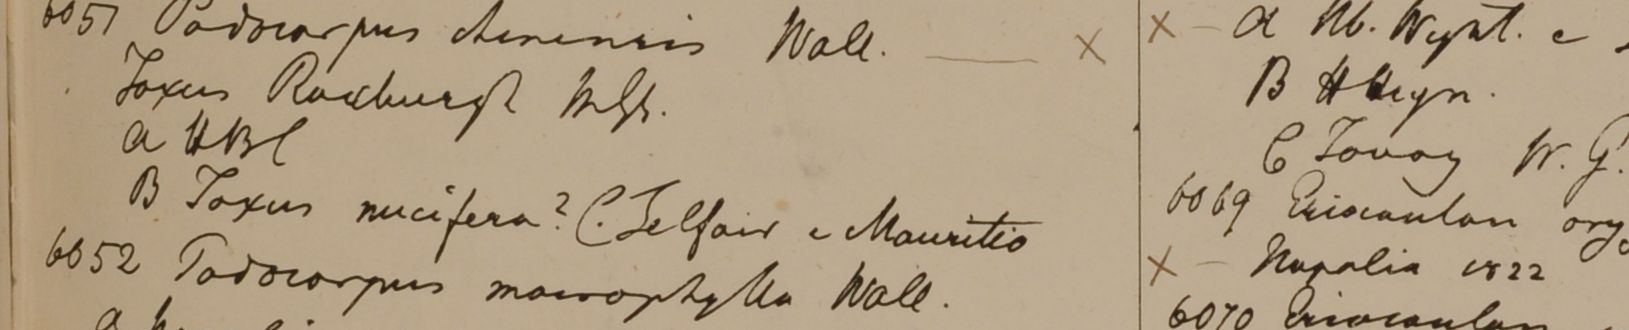 6051 Podocarpus chinensis Wall. — ×
Taxus Roxburgh Mss.
a HBC
B Taxus nucifera? C. Telfair e Mauritio
6052 Podocarpus macrophylla Wall.
× – a Hb. Wight. e
B HHeyn.
C Tavoy W. G.
6069 Eriocaulon ory
× – Napalia 1822
6070 Eriocaulon